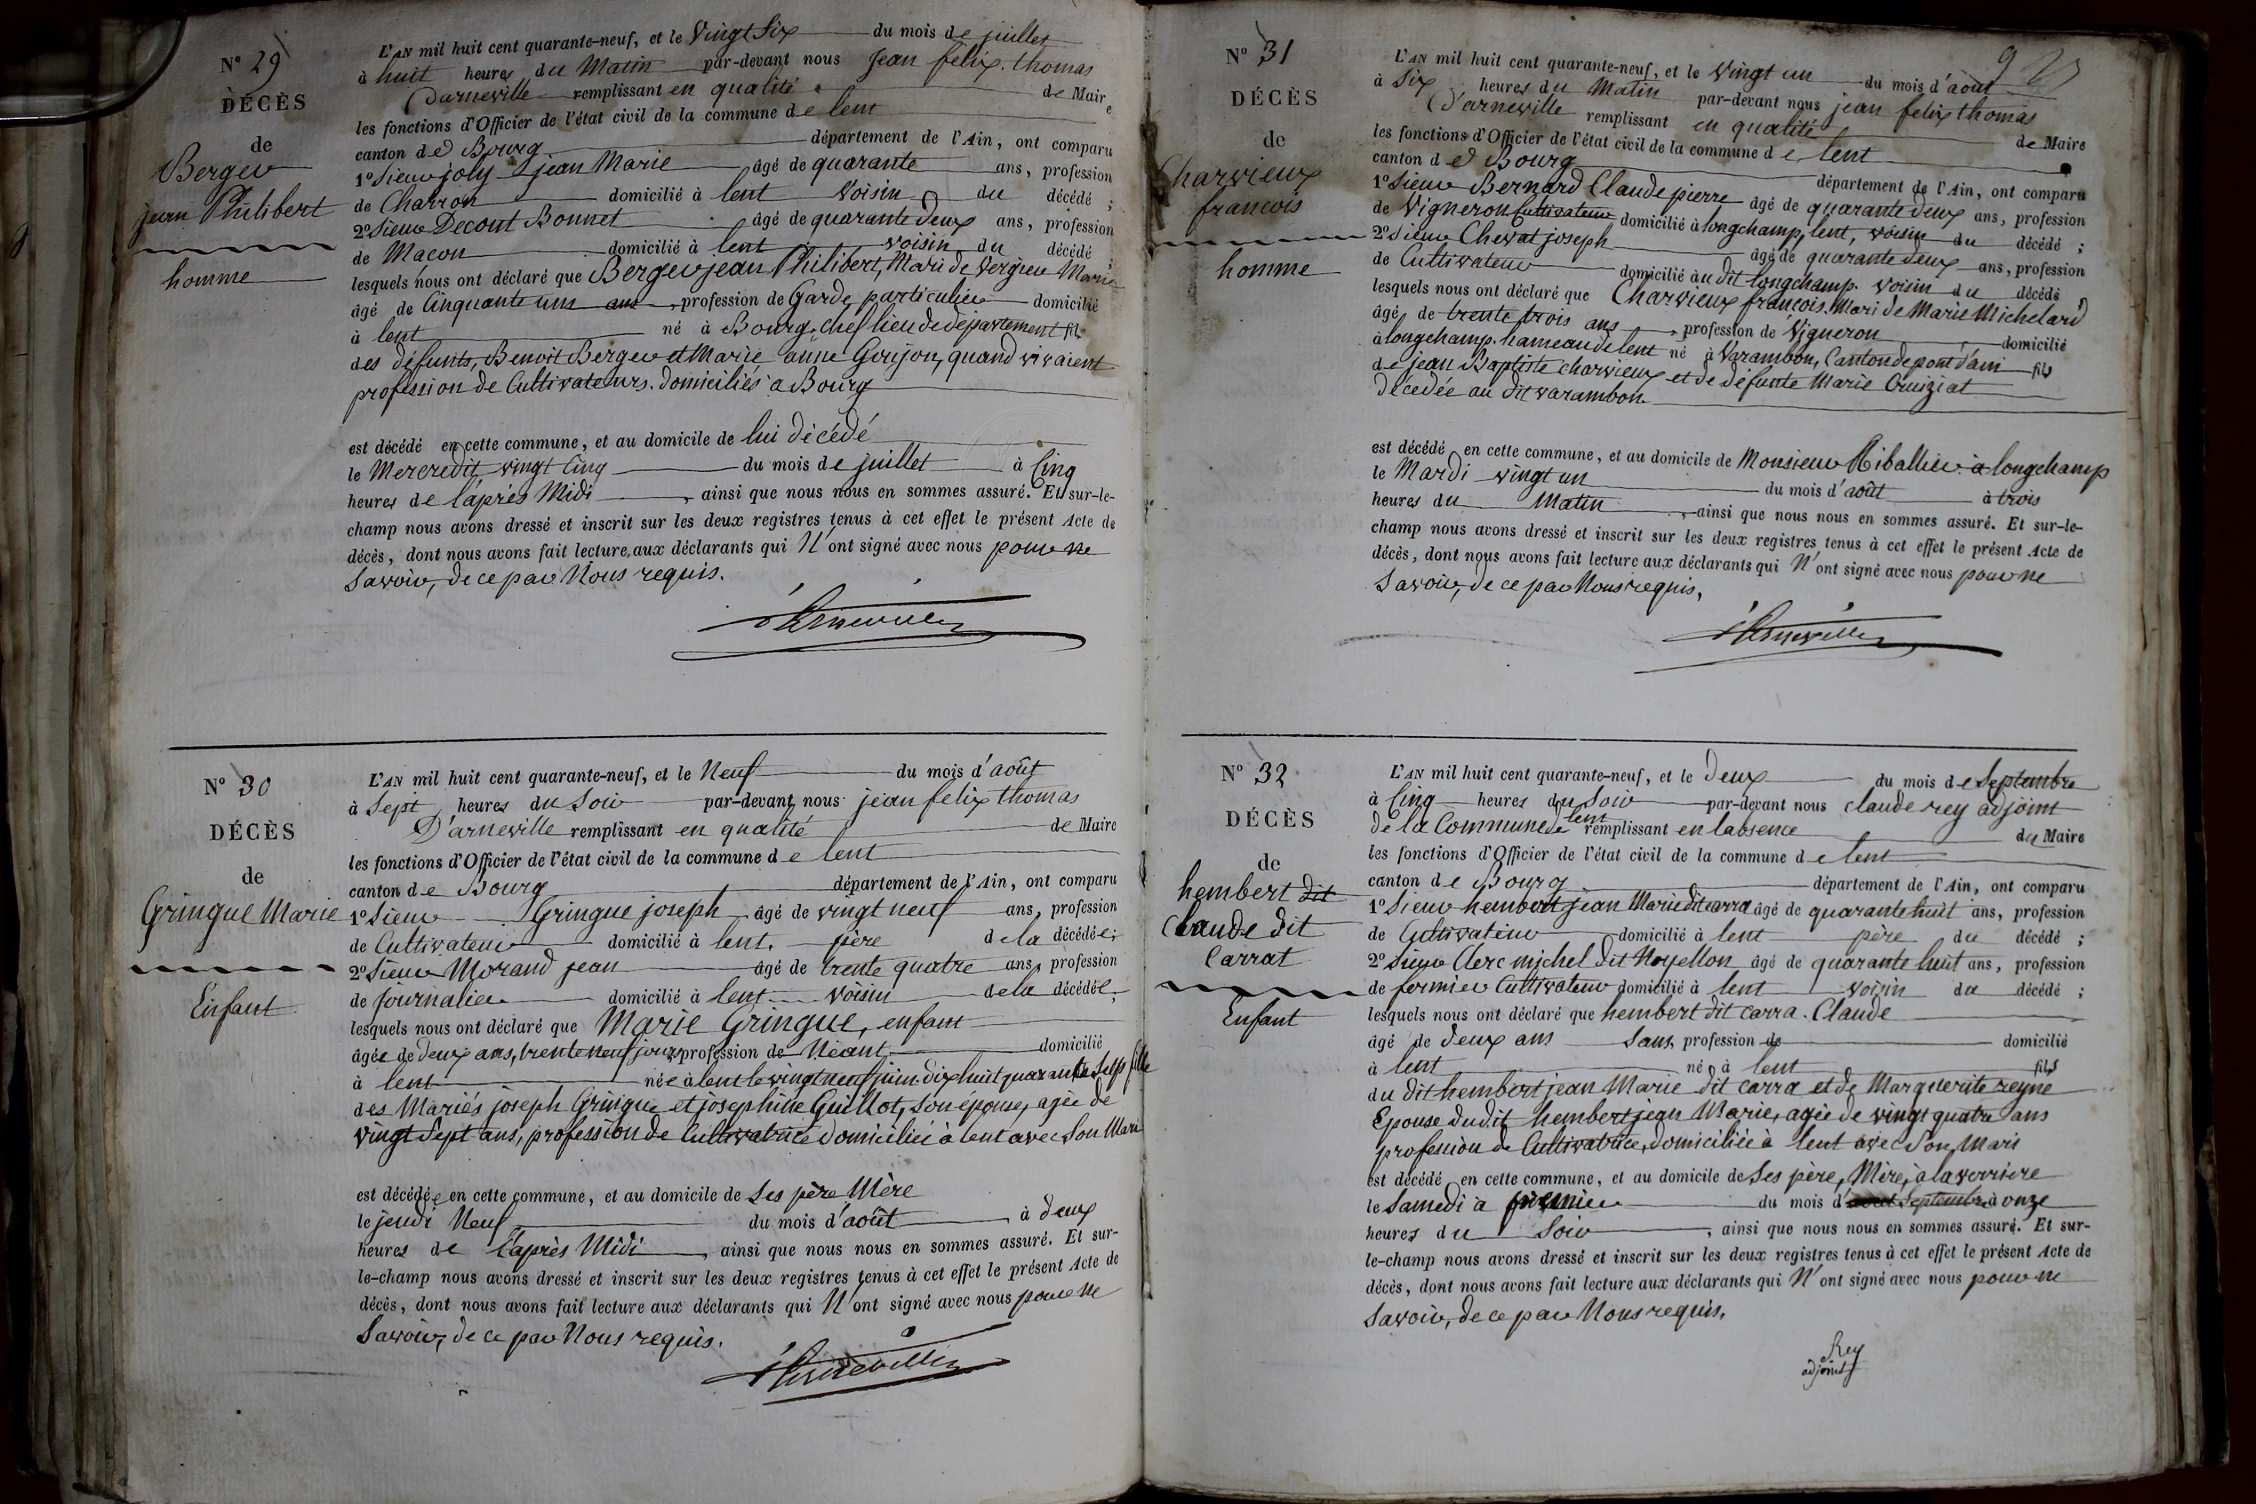 N° 29
DÉCÈS
de
Berger
jean Philibert
homme
L'AN mil huit cent quarante-neuf, et le Vingt Six du mois de juillet
à huit heures du Matin par-devant nous jean felix thomas
Darneville remplissant en qualité de Maire
les fonctions d'Officier de l'état civil de la commune de lent
canton de Bourg département de l'Ain, ont comparu
1° Sieur joly jean Marie âgé de quarante ans, profession
de Charron domicilié à lent Voisin du décédé ;
2° Sieur Decout Bonnet âgé de quarante deux ans, profession
de Macon domicilié à lent voisin du décédé ;
lesquels nous ont déclaré que Berger jean Philibert, Mari de Vergieu Marie
âgé de Cinquante un ans, profession de Garde particulier domicilié
à lent né à Bourg, chef lieu de département fils
des défunts, Benoit Berger et Marie anne Goujon, quand vivaient
profession de Cultivateurs. domiciliés à Bourg
est décédé en cette commune, et au domicile de lui décédé
le Mercredit vingt Cinq du mois de juillet à Cinq
heures de l'après Midi, ainsi que nous nous en sommes assuré. Et sur-le-
champ nous avons dressé et inscrit sur les deux registres tenus à cet effet le présent Acte de
décès, dont nous avons fait lecture aux déclarants qui N'ont signé avec nous pour ne
Savoir, de ce par Nous requis.
d'Arneville
N° 30
DÉCÈS
de
Gringue Marie
Enfant
L'AN mil huit cent quarante-neuf, et le Neuf du mois d'août
à Sept heures du Soir par-devant nous jean felix thomas
D'arneville remplissant en qualité de Maire
les fonctions d'Officier de l'état civil de la commune de lent
canton de Bourg département de l'Ain, ont comparu
1° Sieur Gringue joseph âgé de vingt neuf ans, profession
de Cultivateur domicilié à lent. père de la décédée ;
2° Sieur Morand jean âgé de trente quatre ans, profession
de journalier domicilié à lent voisin de la décédée ;
lesquels nous ont déclaré que Marie Gringue, enfant
âgée de deux ans, trente neuf jours profession de Néant domicilié
à lent née à lent le vingt neuf juin dix huit quarante Sept fille
des Mariés joseph Gringue et josephine Guillot, son épouse, agée de
vingt Sept ans, profession de Cultivatrice domiciliée à lent avec Son Mari
est décédée en cette commune, et au domicile de Ses père Mère
le jeudi Neuf du mois d'août à deux
heures de l'après Midi, ainsi que nous nous en sommes assuré. Et sur-
le-champ nous avons dressé et inscrit sur les deux registres tenus à cet effet le présent Acte de
décès, dont nous avons fait lecture aux déclarants qui N'ont signé avec nous pour ne
Savoir, de ce par Nous requis.
d'Arneville
N° 31
DÉCÈS
de
Charvieux
francois
homme
L'AN mil huit cent quarante-neuf, et le Vingt un du mois d'août
à Six heures du Matin par-devant nous jean felix thomas
D'arneville remplissant en qualité de Maire
les fonctions d'Officier de l'état civil de la commune de lent
canton de Bourg département de l'Ain, ont comparu
1° Sieur Bernard Claude pierre âgé de quarante deux ans, profession
de Vigneron Cultivateur domicilié à longchamp, lent, voisin du décédé ;
2° Sieur Chevat joseph âgé de quarante deux ans, profession
de Cultivateur domicilié au dit longchamp. voisin du décédé ;
lesquels nous ont déclaré que Charvieux francois. Mari de Marie Michelard
âgé de trente trois ans, profession de Vigneron domicilié
à longchamp. hameau de lent né à Varambon, Canton de pont d'ain fils
de jean Baptiste charvieux et de défunte Marie Cruiziat
décedée au dit varambon.
est décédé en cette commune, et au domicile de Monsieur Riballier à longchamp
le Mardi vingt un du mois d'août à trois
heures du Matin, ainsi que nous nous en sommes assuré. Et sur-le-
champ nous avons dressé et inscrit sur les deux registres tenus à cet effet le présent Acte de
décès, dont nous avons fait lecture aux déclarants qui N'ont signé avec nous pour ne
Savoir, de ce par Nous requis,
d'Arneville
N° 32
DÉCÈS
de
hembert dit
Claude dit
Carrat
Enfant
L'AN mil huit cent quarante-neuf, et le Deux du mois de Septembre
à Cinq heures du Soir par-devant nous claude rey adjoint
de la Commune de lent remplissant en labsence du Maire
les fonctions d'Officier de l'état civil de la commune de lent
canton de Bourg département de l'Ain, ont comparu
1° Sieur hembert jean Marie dit carra âgé de quarante huit ans, profession
de Cultivateur domicilié à lent père du décédé ;
2° Sieur Clerc michel dit Noyellon âgé de quarante huit ans, profession
de fermier Cultivateur domicilié à lent voisin du décédé ;
lesquels nous ont déclaré que hembert dit carra. Claude
âgé de deux ans Sans profession de domicilié
à lent né à lent fils
du dit hembert jean Marie dit carra et de Marguerite reyne
Epouse dudit hembert jean Marie, agée de vingt quatre ans
profession de Cultivatrice, domiciliée à lent avec Son Maris
est décédé en cette commune, et au domicile de Ses père, Mère, à la verriere
le Samedi a premier du mois d'août Septembre à onze
heures du Soir, ainsi que nous nous en sommes assuré. Et sur-
le-champ nous avons dressé et inscrit sur les deux registres tenus à cet effet le présent Acte de
décès, dont nous avons fait lecture aux déclarants qui N'ont signé avec nous pour ne
Savoir, de ce par Nous requis.
Rey
adjoint